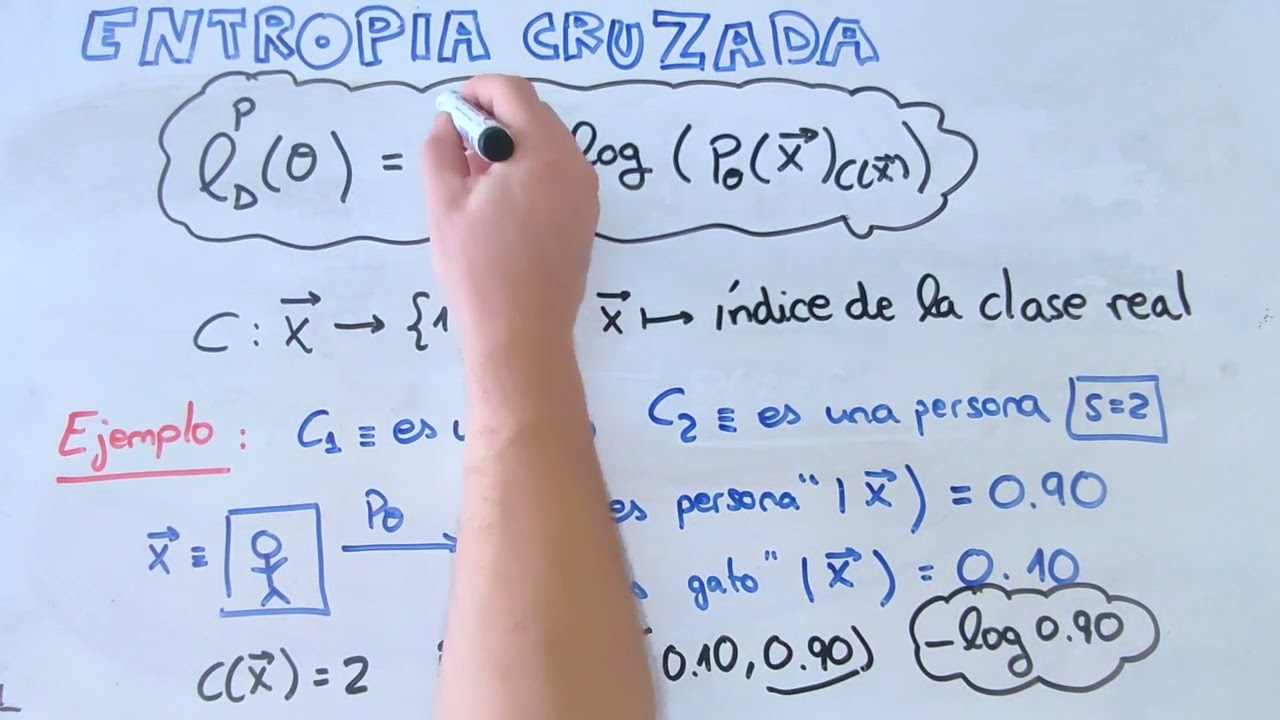 ENTROPIA CRUZADA
ℓ_D^P(θ) = log(P_θ(x⃗)_{C(x⃗)})
C: x⃗ → {1 x⃗ ↦ índice de la clase real
Ejemplo: C₁ ≡ es C₂ ≡ es una persona S=2
x⃗ ≡ P_θ → es persona" | x⃗) = 0.90
gato" | x⃗) = 0.10
C(x⃗) = 2 0.10, 0.90) -log 0.90